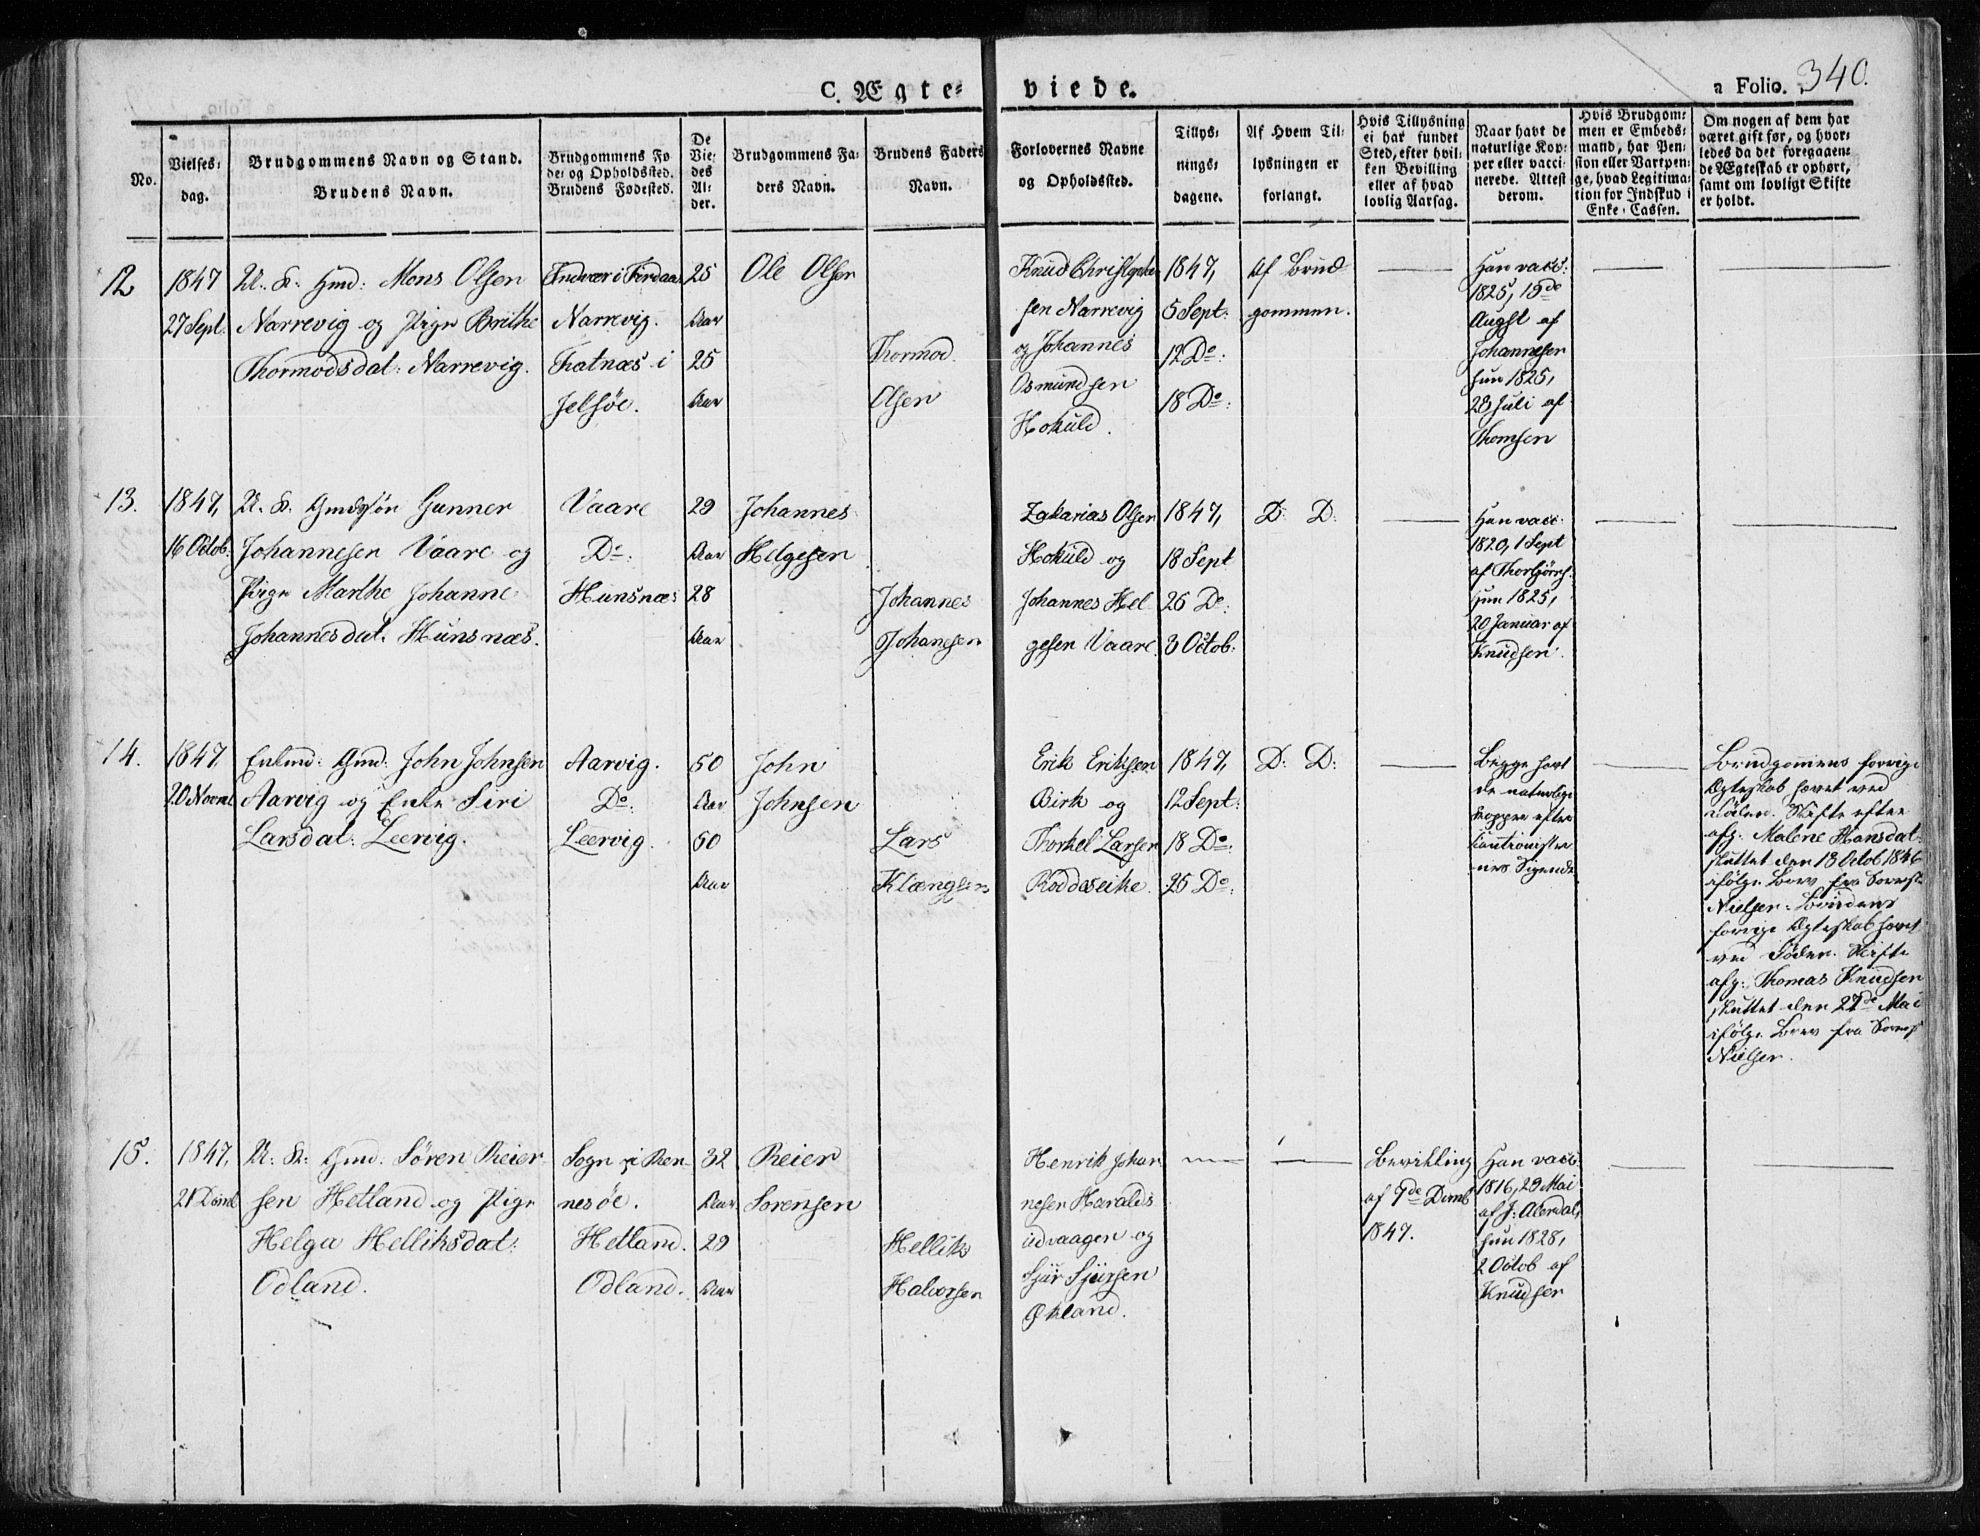 C. Ægte- viede.
a Folio. 340.
No.
Vielses-
dag.
Brudgommens Navn og Stand.
Brudens Navn.
Brudgommens Fø-
de- og Opholdssted.
Brudens Fødested.
De
Vie-
des
Al-
der.
Brudgommens Fa-
ders Navn.
Brudens Faders
Navn.
Forlovernes Navne
og Opholdssted.
Tillys-
nings-
dagene.
Af Hvem Til-
lysningen er
forlangt.
Hvis Tillysning
ei har fundet
Sted, efter hvil-
ken Bevilling
eller af hvad
lovlig Aarsag.
Naar havt de
naturlige Kop-
per eller vacci-
nerede. Attest
derom.
Hvis Brudgom-
men er Embeds-
mand, har Pen-
sion eller Vartpen-
ge, hvad Legitima-
tion for Indskud i
Enke-Cassen.
Om nogen af dem har
været gift før, og hvor-
ledes da det foregaaen-
de Ægteskab er ophørt,
samt om lovligt Skifte
er holdt.
12
1847
27 Sept.
U. K. Gmd: Mons Olsen
Narrevig og Pige Brithe
Thormodsdat: Narrevig.
Narrevig.
Jelsöe.
25
Aar
25
Aar
Ole Olsen
Thormod
Olsen
Knud Christophe
sen Narrevig
og Johannes
Osmundsen
Hokuld.
1847,
5 Sept:
12 Do:
18 Do:
Af Brud-
gommen.
Han vacc:
1825, 15de
Augst af
Johannesen
hun 1825,
28 Juli af
Thomsen
13.
1847,
16 Octob:
U. K. Gmdssön Gunner
Johannesen Vaare og
Pige Marthe Johanne
Johannesdat. Hunsnæs.
Vaare
Do:
Hunsnæs
29
Aar
28
Aar
Johannes
Helgesen
Johannes
Johanesen
Zakarias Olsen
Hokuld og
Johannes Hel
gesen Vaare.
1847,
18 Sept
26 Do:
3 Octob:
D: D:
Han vacc:
1820, 1 Sept
af Thorbjörns.
hun 1825,
20 Januar af
Knudsen.
14.
1847
20 Novmb
Enkmd: Gmd. John Johnsen
Aarvig og Enke Siri
Larsdat: Leervig.
Aarvig.
Do:
Leervig
50
Aar
60
Aar
John
Johnsen
Lars
Klængsen
Erik Eriksen
Birk og
Thorkel Larsen
Roddseike.
1847,
12 Sept:
18 Do:
25 Do:
D: D:
Begge havt
de naturlige
Kopper efter
Cautioniste
nes Sigende
Brudgomens forrige
Ægteskab hævet ved
Döden. Skifte efter
afg: Malene Hansdat.
sluttet den 13 Octob 1846
ifölge Brev fra Sorensk
Nielsen. Brudens
forrige Ægteskab hævet
ved Döden. Skifte
afg: Thomas Knudsen
sluttet den 27de Mai
ifölge Brev fra Sorensk
Nielsen.
15.
1847,
21 Decmb
U: K: Gmd. Sören Reier
sen Hetland og Pige
Helga Helliksdat:
Odland.
Sogn i Ren-
nesöe.
Hetland.
Odland.
32
Aar
29
Aar
Reier
Sorensen
Hellik
Halvorsen
Henrik Johan
nesen Haralds
eidvaagen og
Sjur Sjursen
Økland.
Bevilling
af 7de Decmb
1847.
Han vacc:
1816, 29 Mai
af J: Aberdal,
hun 1828,
2 Octob af
Knudsen